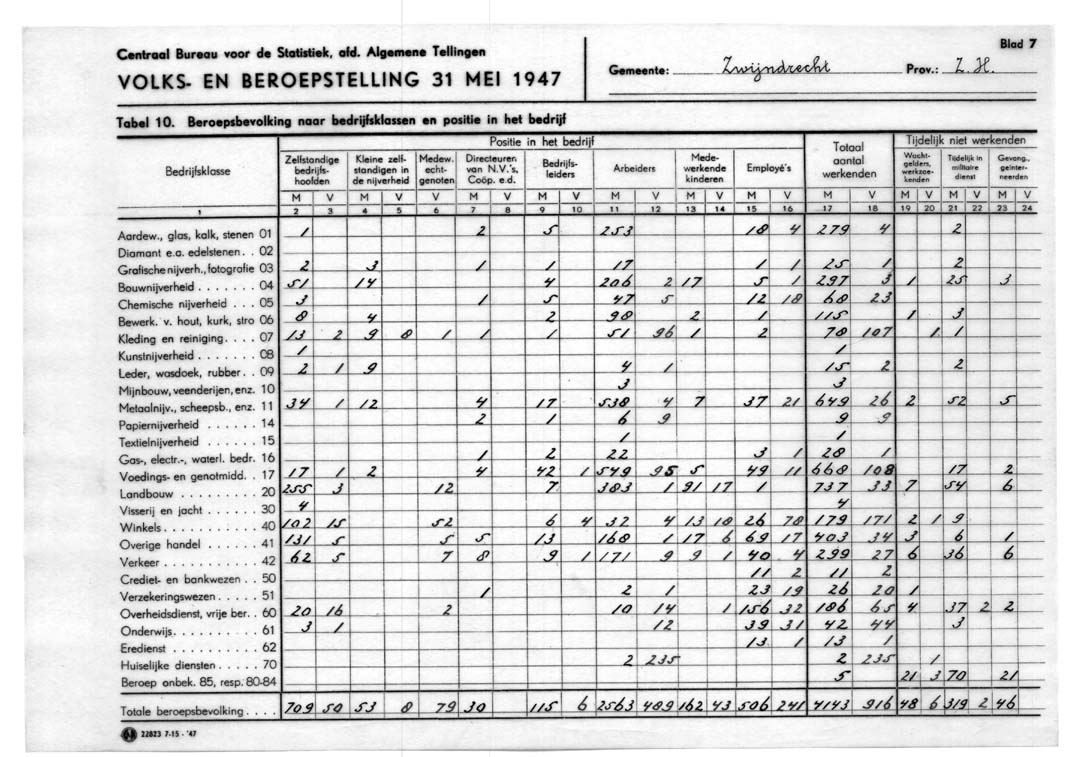 Centraal Bureau voor de Statistiek, afd. Algemene Tellingen
VOLKS- EN BEROEPSTELLING 31 MEI 1947
Gemeente: Zwijndrecht Prov.: Z.H.
Blad 7
Tabel 10. Beroepsbevolking naar bedrijfsklassen en positie in het bedrijf
Positie in het bedrijf
Bedrijfsklasse
Zelfstandige bedrijfs-hoofden
Kleine zelf-standigen in de nijverheid
Medew. echt-genoten
Directeuren van N.V.'s, Coöp. e.d.
Bedrijfs-leiders
Arbeiders
Mede-werkende kinderen
Employé's
Totaal aantal werkenden
Tijdelijk niet werkenden
Wacht-gelders, werkzoe-kenden
Tijdelijk in militaire dienst
Gevang., geïnter-neerden
M V M V V M V M V M V M V M V M V M V M V M V
1 2 3 4 5 6 7 8 9 10 11 12 13 14 15 16 17 18 19 20 21 22 23 24
Aardew., glas, kalk, stenen 01 1 2 5 253 18 4 279 4 2
Diamant e.a. edelstenen . . 02
Grafische nijverh., fotografie 03 2 3 1 1 17 1 1 25 1 2
Bouwnijverheid . . . . . . . 04 51 14 4 206 2 17 5 1 297 3 1 25 3
Chemische nijverheid . . . 05 3 1 5 47 5 12 18 68 23
Bewerk. v. hout, kurk, stro 06 8 4 2 98 2 1 115 1 3
Kleding en reiniging . . . . 07 13 2 9 8 1 1 1 51 96 1 2 78 107 1 1
Kunstnijverheid . . . . . . . 08 1 1
Leder, wasdoek, rubber . . 09 2 1 9 4 1 15 2 2
Mijnbouw, veenderijen, enz. 10 3 3
Metaalnijv., scheepsb., enz. 11 34 1 12 4 17 538 4 7 37 21 649 26 2 52 5
Papiernijverheid . . . . . . 14 2 1 6 9 9 9
Textielnijverheid . . . . . . 15 1 1
Gas-, electr.-, waterl. bedr. 16 1 2 22 3 1 28 1
Voedings- en genotmidd. . . 17 17 1 2 4 42 1 549 95 5 49 11 668 108 17 2
Landbouw . . . . . . . . . 20 255 3 12 7 383 1 91 17 1 737 33 7 54 6
Visserij en jacht . . . . . . 30 4 4
Winkels . . . . . . . . . . . 40 102 15 52 6 4 32 4 13 18 26 78 179 171 2 1 9
Overige handel . . . . . . . 41 131 5 5 5 13 168 1 17 6 69 17 403 34 3 6 1
Verkeer . . . . . . . . . . . 42 62 5 7 8 9 1 171 9 9 1 40 4 299 27 6 36 6
Crediet- en bankwezen . . 50 11 2 11 2
Verzekeringswezen . . . . . 51 1 2 1 23 19 26 20 1
Overheidsdienst, vrije ber. . 60 20 16 2 10 14 1 156 32 186 65 4 37 2 2
Onderwijs . . . . . . . . . . 61 3 1 12 39 31 42 44 3
Eredienst . . . . . . . . . . 62 13 1 13 1
Huiselijke diensten . . . . . 70 2 235 2 235 1
Beroep onbek. 85, resp. 80-84 5 21 3 70 21
Totale beroepsbevolking . . . . 709 50 53 8 79 30 115 6 2563 489 162 43 506 241 4143 916 48 6 319 2 46
22823 7-15 - '47